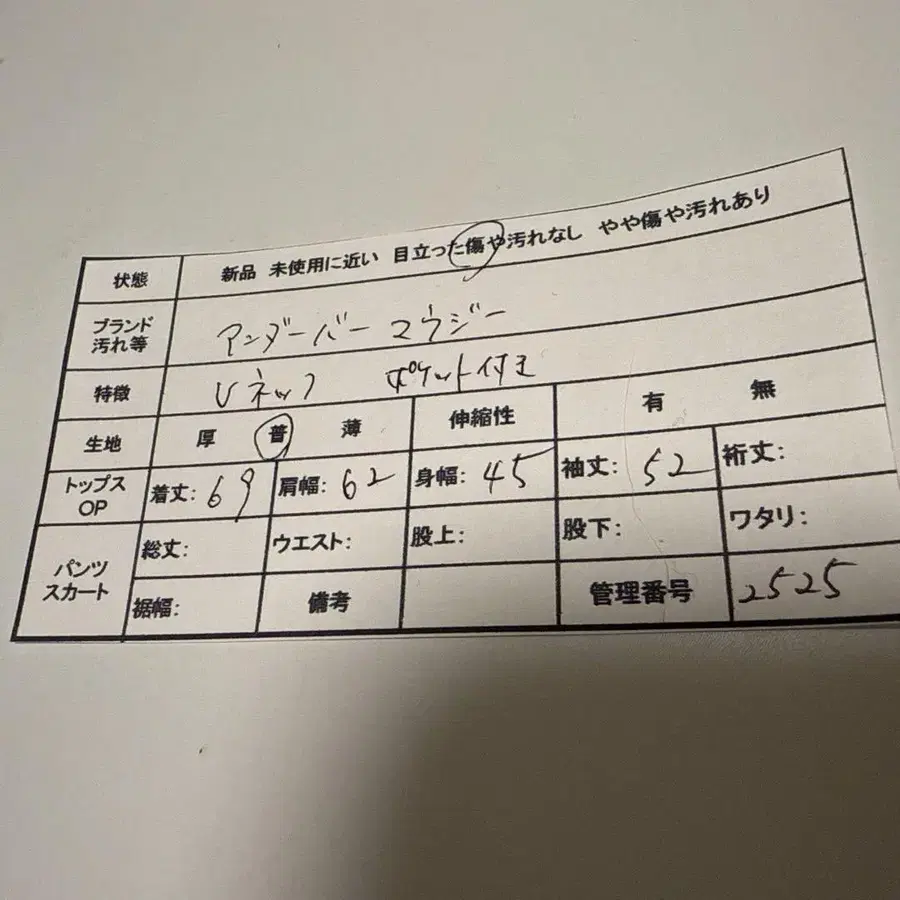 状態 新品 未使用に近い 目立った傷や汚れなし やや傷や汚れあり
ブランド 汚れ等 アンダーバー マウジー
特徴 Vネック ポケット付き
生地 厚 普 薄 伸縮性 有 無
トップス OP 着丈: 69 肩幅: 62 身幅: 45 袖丈: 52 裄丈:
パンツ スカート 総丈: ウエスト: 股上: 股下: ワタリ:
裾幅: 備考 管理番号 2525